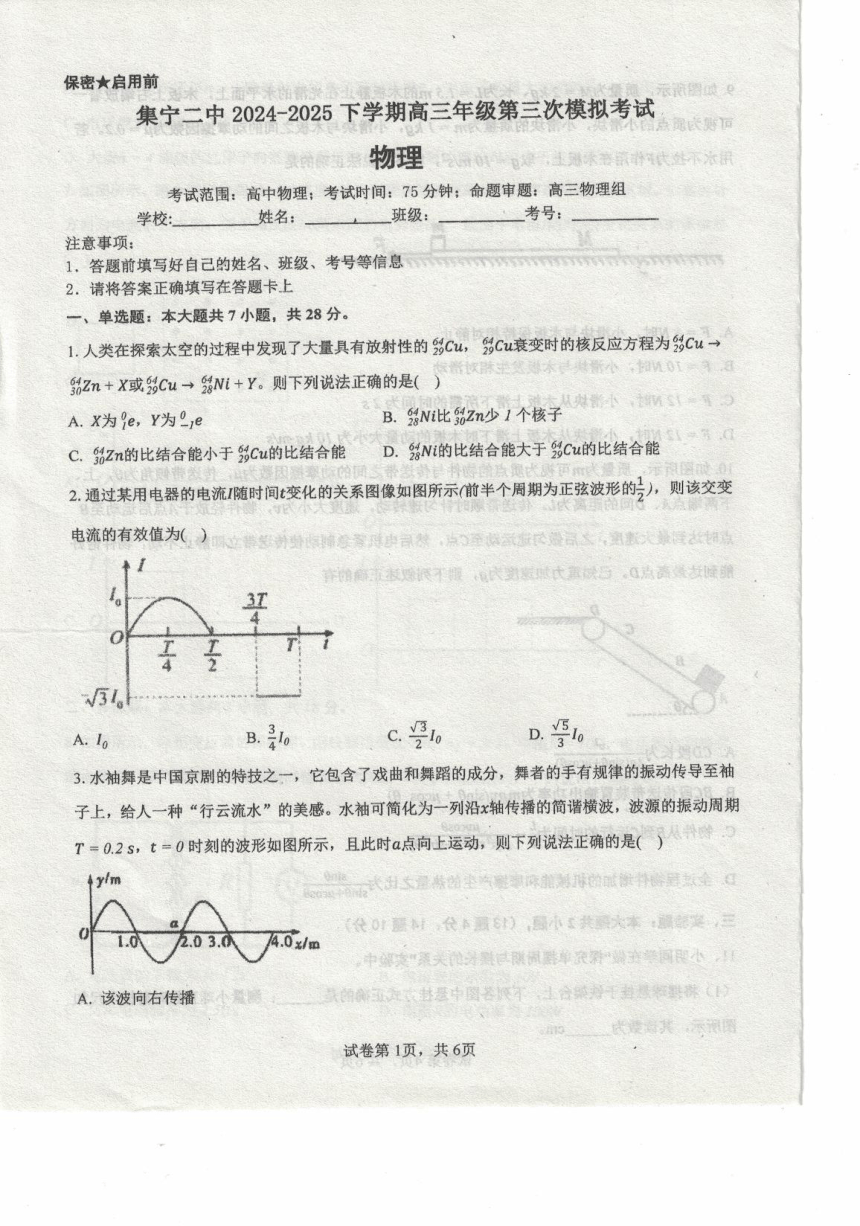 保密★启用前
集宁二中 2024-2025 下学期高三年级第三次模拟考试
物理
考试范围：高中物理；考试时间：75 分钟；命题审题：高三物理组
学校:________姓名：________班级：________考号：________
注意事项：
1．答题前填写好自己的姓名、班级、考号等信息
2．请将答案正确填写在答题卡上
一、单选题：本大题共 7 小题，共 28 分。
1. 人类在探索太空的过程中发现了大量具有放射性的 ⁶⁴₂₉Cu，⁶⁴₂₉Cu衰变时的核反应方程为⁶⁴₂₉Cu →
⁶⁴₃₀Zn + X或⁶⁴₂₉Cu → ⁶⁴₂₈Ni + Y。则下列说法正确的是( )
A. X为 ⁰₁e，Y为 ⁰₋₁e B. ⁶⁴₂₈Ni比 ⁶⁴₃₀Zn少 1 个核子
C. ⁶⁴₃₀Zn的比结合能小于 ⁶⁴₂₉Cu的比结合能 D. ⁶⁴₂₈Ni的比结合能大于 ⁶⁴₂₉Cu的比结合能
2. 通过某用电器的电流I随时间t变化的关系图像如图所示(前半个周期为正弦波形的1/2)，则该交变
电流的有效值为( )
I
I₀
3T/4
O
T/4
T/2
T
t
-√3I₀
A. I₀ B. 3/4 I₀ C. √3/2 I₀ D. √5/3 I₀
3. 水袖舞是中国京剧的特技之一，它包含了戏曲和舞蹈的成分，舞者的手有规律的振动传导至袖
子上，给人一种“行云流水”的美感。水袖可简化为一列沿x轴传播的简谐横波，波源的振动周期
T = 0.2 s，t = 0 时刻的波形如图所示，且此时a点向上运动，则下列说法正确的是( )
y/m
0
a
1.0
2.0
3.0
4.0
x/m
A. 该波向右传播
试卷第 1页，共 6页